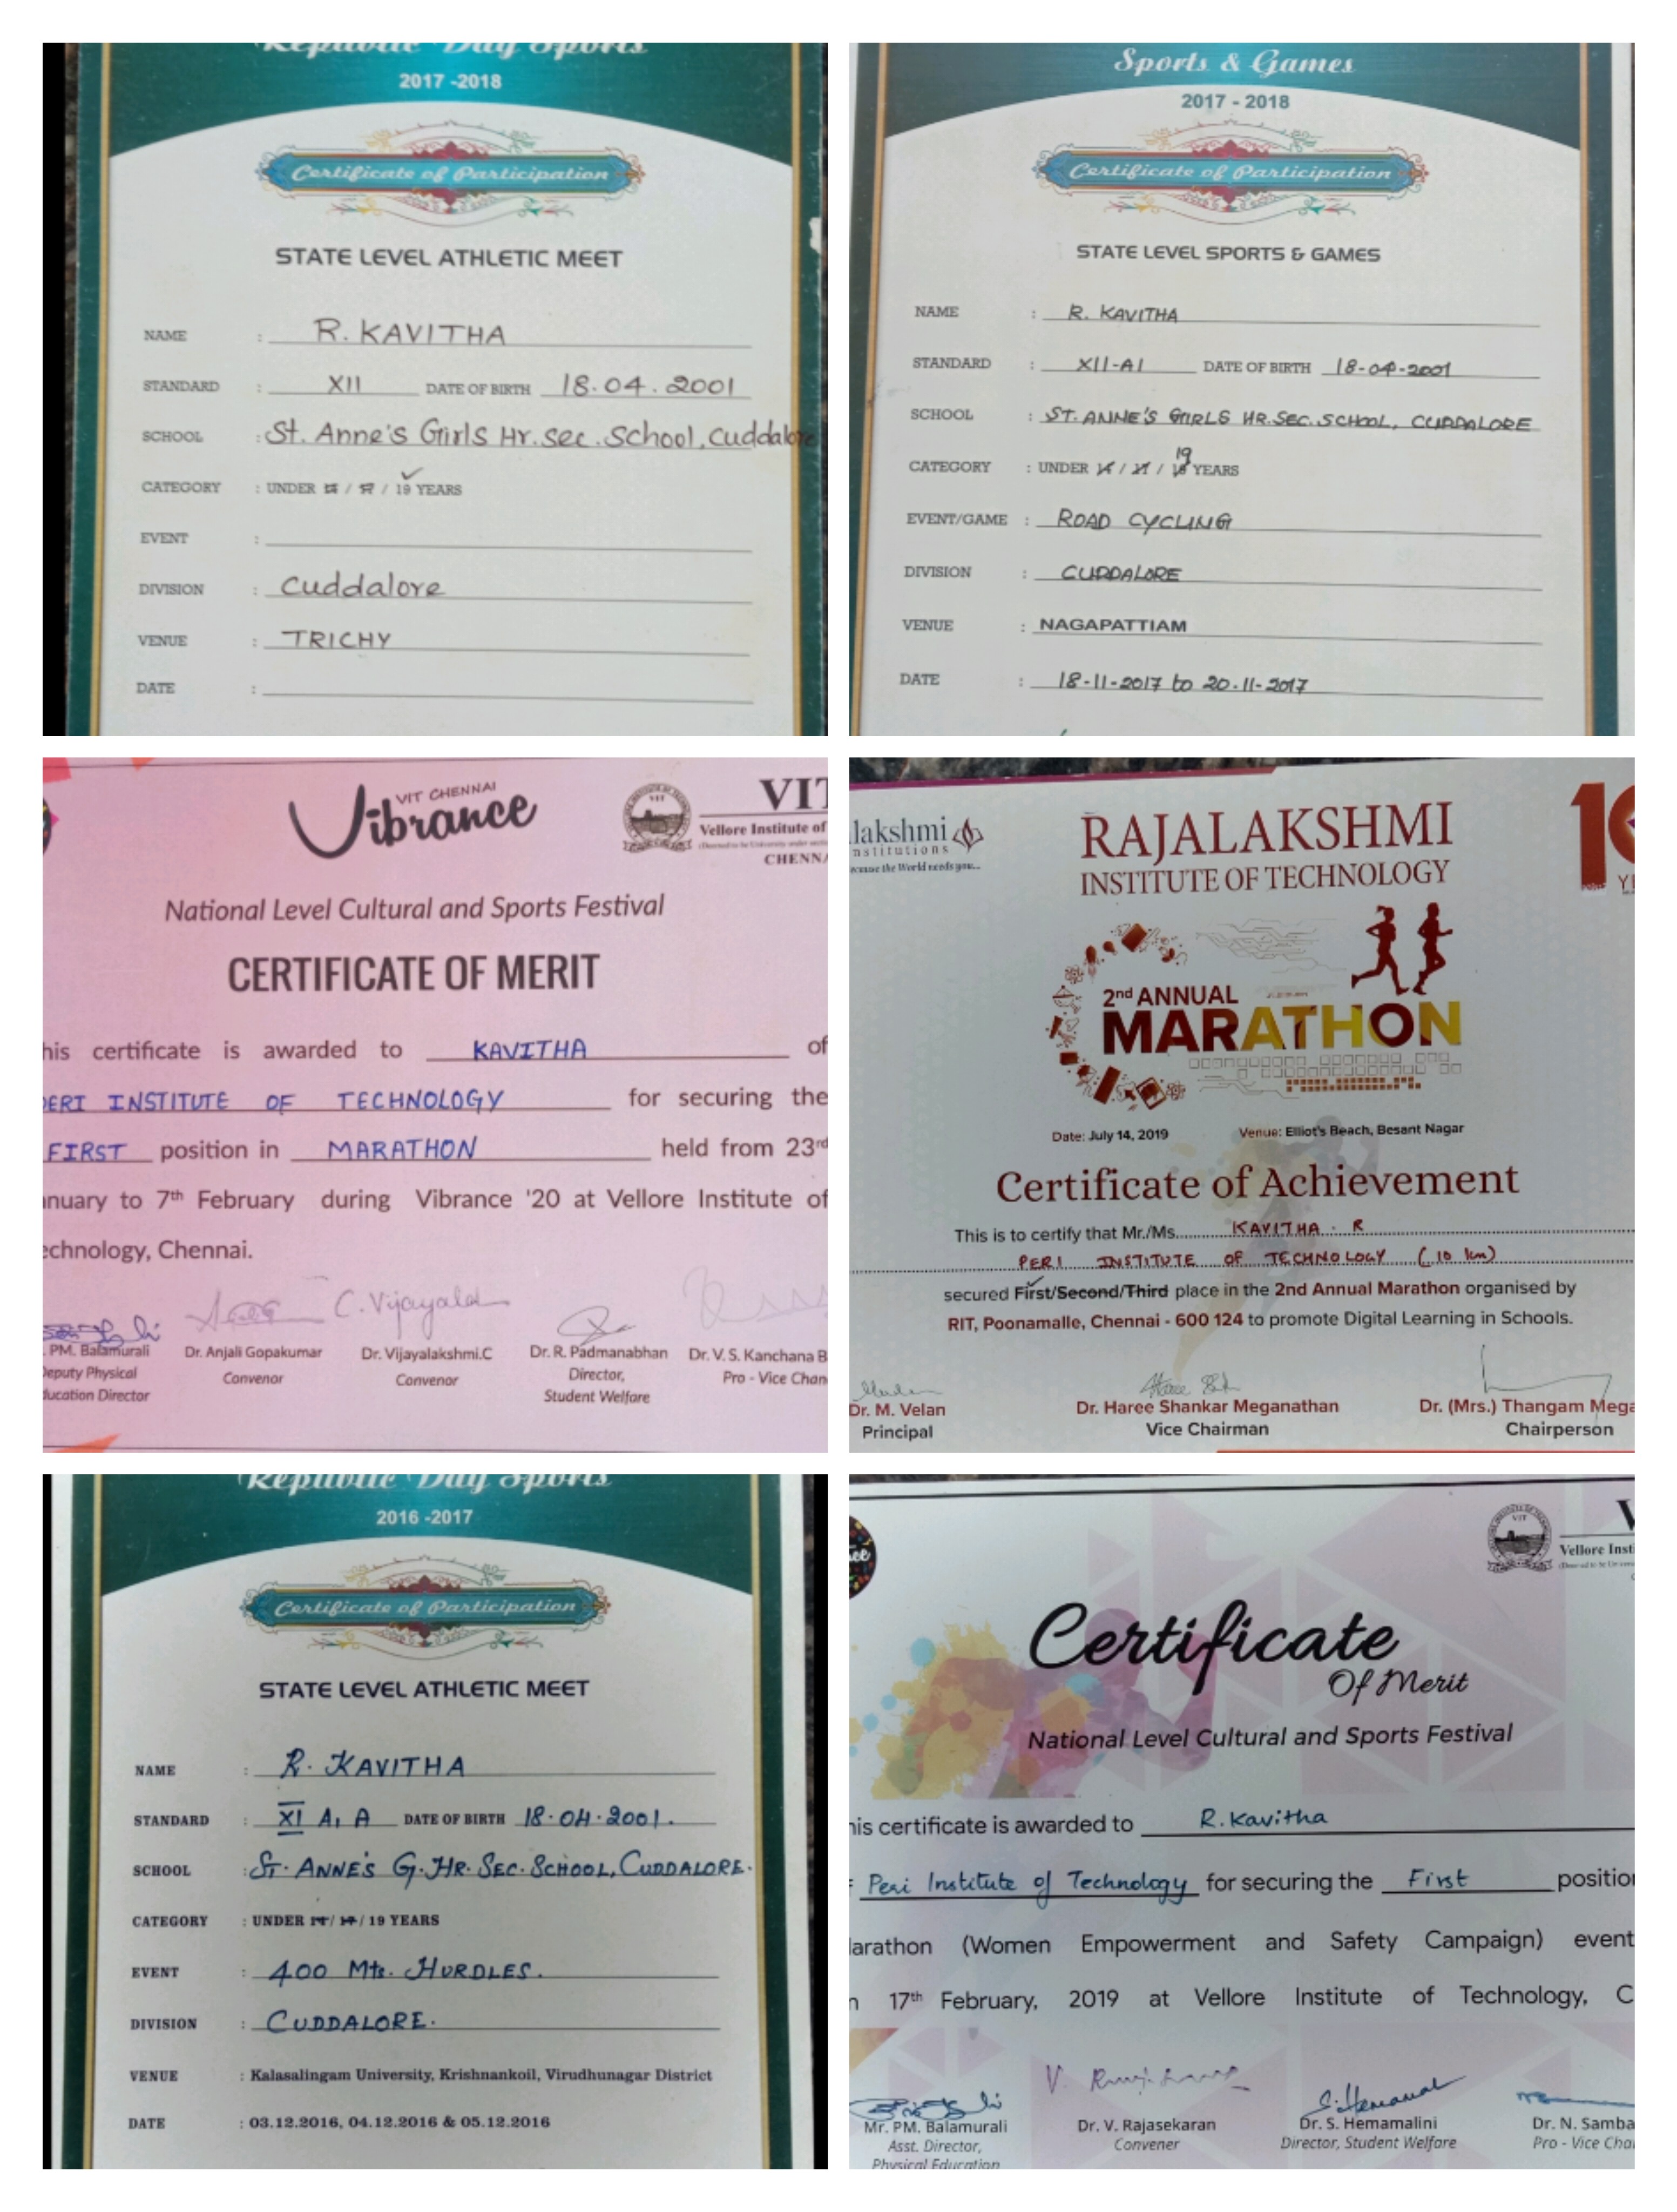 Republic Day Sports
2017 -2018
Certificate of Participation
STATE LEVEL ATHLETIC MEET
NAME : R. KAVITHA
STANDARD : XII DATE OF BIRTH 18.04.2001
SCHOOL : St. Anne's Girls Hr. sec. School, Cuddalore
CATEGORY : UNDER 14 / 17 / 19 YEARS
EVENT :
DIVISION : Cuddalore
VENUE : TRICHY
DATE :
Sports & Games
2017 - 2018
Certificate of Participation
STATE LEVEL SPORTS & GAMES
NAME : R. KAVITHA
STANDARD : XII-A1 DATE OF BIRTH 18-04-2001
SCHOOL : ST. ANNE'S GIRLS HR. SEC. SCHOOL, CUDDALORE
19
CATEGORY : UNDER 14 / 17 / YEARS
EVENT/GAME : ROAD CYCLING
DIVISION : CUDDALORE
VENUE : NAGAPATTIAM
DATE : 18-11-2017 to 20-11-2017
VIT CHENNAI
Vibrance
VIT
Vellore Institute of
CHENNA
National Level Cultural and Sports Festival
CERTIFICATE OF MERIT
his certificate is awarded to KAVITHA of
PERI INSTITUTE OF TECHNOLOGY for securing the
FIRST position in MARATHON held from 23rd
anuary to 7th February during Vibrance '20 at Vellore Institute of
echnology, Chennai.
C. Vijayalak
. PM. Balamurali Dr. Anjali Gopakumar Dr. Vijayalakshmi.C Dr. R. Padmanabhan Dr. V. S. Kanchana B
Deputy Physical Convenor Convenor Director, Pro - Vice Chan
ducation Director Student Welfare
lakshmi
nstitutions
ecause the World needs you...
RAJALAKSHMI
INSTITUTE OF TECHNOLOGY
10
YE
2nd ANNUAL
MARATHON
Date: July 14, 2019 Venue: Elliot's Beach, Besant Nagar
Certificate of Achievement
This is to certify that Mr./Ms. KAVITHA . R
PERI INSTITUTE OF TECHNOLOGY (10 km)
secured First/Second/Third place in the 2nd Annual Marathon organised by
RIT, Poonamalle, Chennai - 600 124 to promote Digital Learning in Schools.
Dr. M. Velan Dr. Haree Shankar Meganathan Dr. (Mrs.) Thangam Mega
Principal Vice Chairman Chairperson
Republic Day Sports
2016 -2017
Certificate of Participation
STATE LEVEL ATHLETIC MEET
NAME : R. KAVITHA
STANDARD : XI A1 A DATE OF BIRTH 18.04.2001.
SCHOOL : ST. ANNE'S G. HR. SEC. SCHOOL, CUDDALORE.
CATEGORY : UNDER 14 / 17 / 19 YEARS
EVENT : 400 Mts. HURDLES.
DIVISION : CUDDALORE.
VENUE : Kalasalingam University, Krishnankoil, Virudhunagar District
DATE : 03.12.2016, 04.12.2016 & 05.12.2016
VIT
V
Vellore Insti
Certificate
Of Merit
National Level Cultural and Sports Festival
his certificate is awarded to R. Kavitha
Peri Institute of Technology for securing the First position
arathon (Women Empowerment and Safety Campaign) event
n 17th February, 2019 at Vellore Institute of Technology, C
Mr. PM. Balamurali Dr. V. Rajasekaran Dr. S. Hemamalini Dr. N. Samba
Asst. Director, Convener Director, Student Welfare Pro - Vice Cha
Physical Education